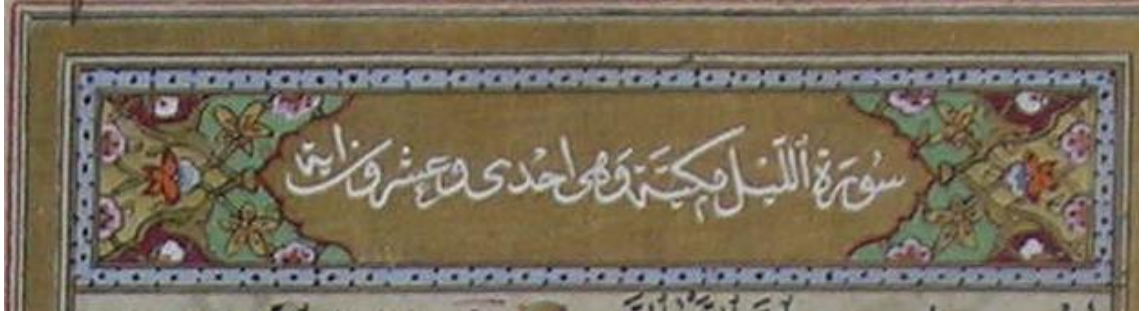 سُورَةُ اللَّيْلِ مَكِّيَّة وَهِيَ اِحْدٰى وَعِشْرُونَ اٰيَة